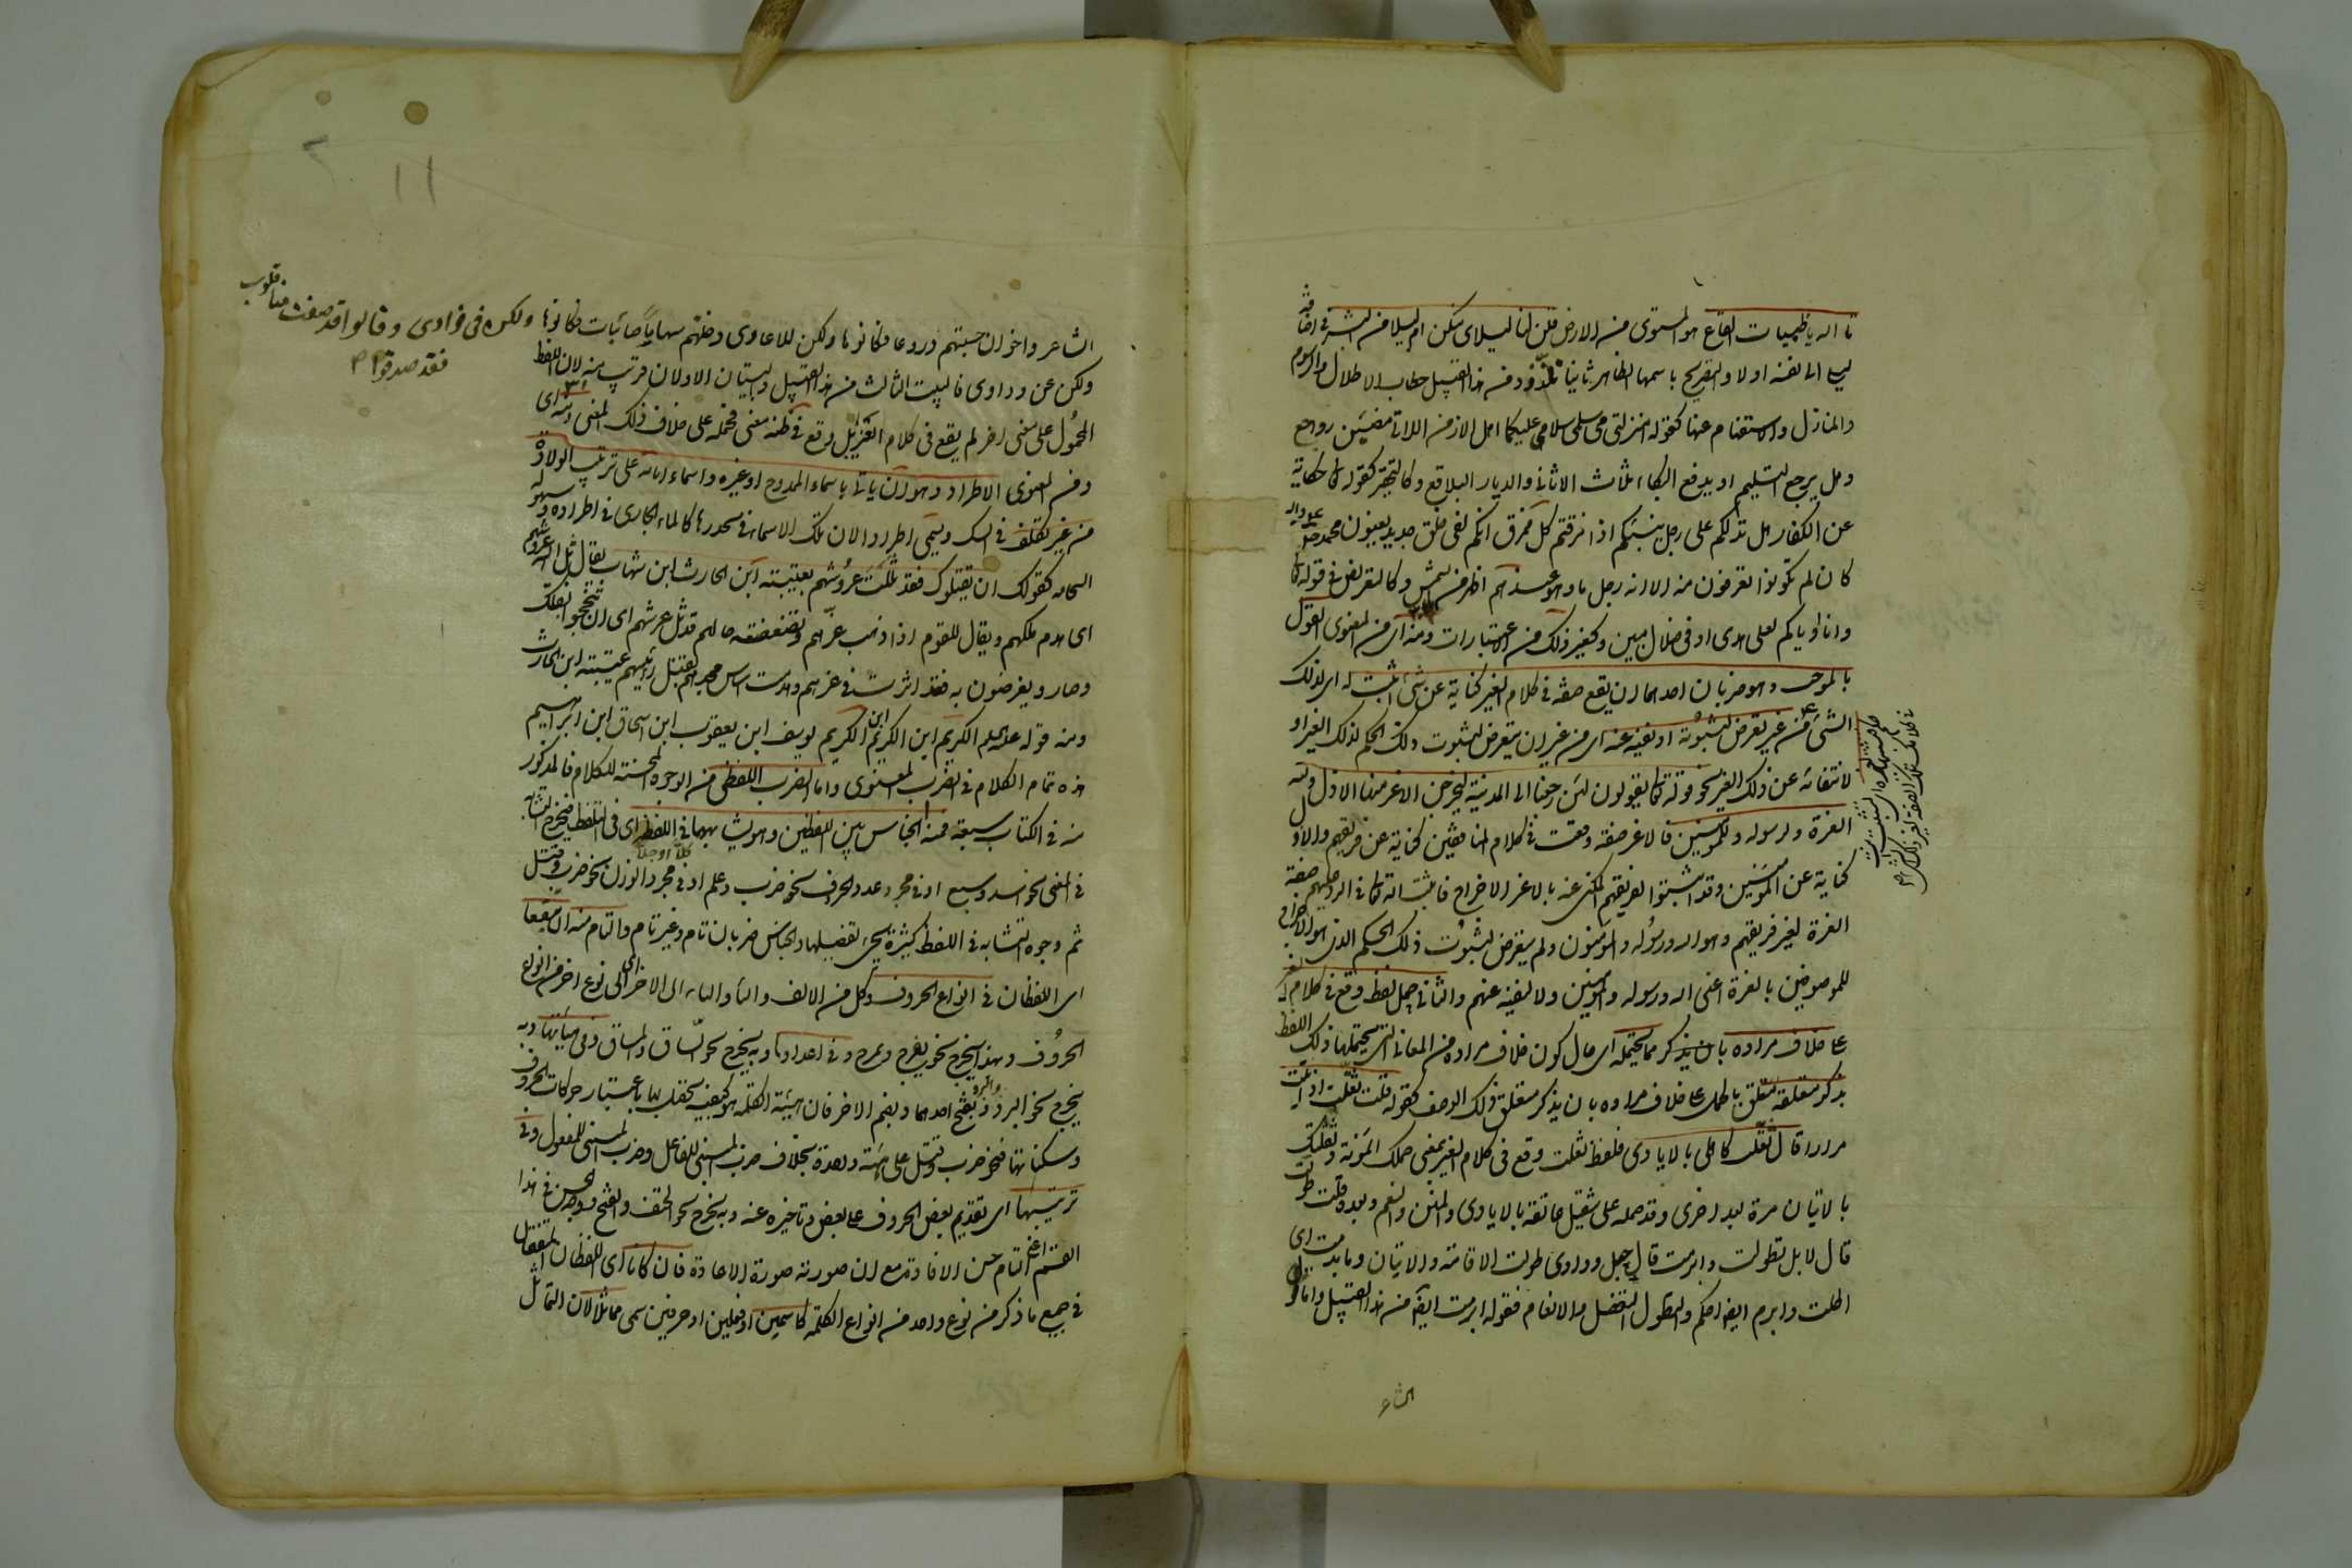 تا الله يا ظبيات القاع هو المستوى من الارض قلن لنا ليلاى منكن ام ليلى من البشر فى اضافة
ليلى الى نفسه اولا والتصريح باسمها الظاهر ثانيا تلذذ ومن هذا القبيل خطاب الاطلال والرسوم
والمنازل والاستفهام عنها كقوله امنزلتى مى سلام عليكما هل الازمن اللاتى مضين رواجع
وهل يرجع التسليم او يدفع البكاء ثلاث الاثافى والديار البلاقع وكالتحقير كقوله تعالى حكاية
عن الكفار هل ندلكم على رجل ينبئكم اذا مزقتم كل ممزق انكم لفى خلق جديد يعنون محمد صلى الله عليه واله
كان لم يكونوا يعرفون منه الا انه رجل ما وهو عندهم اظهر من الشمس وكالتعريض فى قوله تعالى
وانا او اياكم لعلى هدى او فى ضلال مبين وكغير ذلك من الاعتبارات ومنه اى من المعنوى القول
بالموجب وهو ضربان احدهما ان يقع صفة فى كلام الغير كناية عن شئ اثبت له اى لذلك
الشئ من غير تعرض لثبوته او نفيه عنه اى من غير ان يتعرض لثبوت ذلك الحكم لذلك الغير او
لانتفائه عن ذلك الغير نحو قوله تعالى يقولون لئن رجعنا الى المدينة ليخرجن الاعز منها الاذل ولله
العزة ولرسوله وللمؤمنين فالاعز صفة وقعت فى كلام المنافقين كناية عن فريقهم والاذل
كناية عن المؤمنين وقد اثبتوا لفريقهم المكنى عنه بالاعز الاخراج فاثبت الله تعالى فى الرد عليهم صفة
العزة لغير فريقهم وهو الله ورسوله والمؤمنون ولم يتعرض لثبوت ذلك الحكم الذى هو الاخراج
للموصوفين بالعزة اعنى الله ورسوله والمؤمنين ولا لنفيه عنهم والثانى حمل لفظ وقع فى كلام الغير
على خلاف مراده بان يذكر مما يحتمله اى حال كون خلاف مراده من المعانى التى يحتملها ذلك اللفظ
بذكر متعلقه متعلق بالحمل على خلاف مراده بان يذكر متعلق ذلك الوصف كقوله قلت ثقلت اذ اتيت
مرارا قال ثقلت كاهلى بالايادى فلفظ ثقلت وقع فى كلام الغير بمعنى حملك المؤنة وثقلتك
بالاتيان مرة بعد اخرى وقد حمله على تثقيل عاتقه بالايادى والمنن والنعم وبعده قلت طولت
قال لا بل تطولت وابرمت قال حبل ودادى طولت الاقامة والاتيان وابرمت اى
املت وابرم ايضا احكم والتطول التفضل والانعام فقوله ابرمت ايضا من هذا القبيل واما قول
الشاعر
الشاعر واخوان حسبتهم دروعا فكانوها ولكن للاعادى وخلتهم سهاما صائبات فكانوها ولكن فى فؤادى وقالوا قد صفت منا قلوب
فقد صدقوا
ولكن عن ودادى فالبيت الثالث من هذا القبيل والبيتان الاولان قريب منه لان اللفظ
المحمول على معنى اخر لم يقع فى كلام الغير بل وقع فى ظنه معنى فحمله على خلاف ذلك المعنى ومنه اى
ومن المعنوى الاطراد وهو ان ياتى باسماء الممدوح او غيره واسماء ابائه على ترتيب الولادة
من غير تكلف فى السبك ويسمى اطرادا لان تلك الاسماء فى تحدرها كالماء الجارى فى اطراده وسهولة
انسجامه كقولك ان يقتلوك فقد ثللت عروشهم بعتيبة ابن الحارث ابن شهاب يقال ثل الله عروشهم
اى هدم ملكهم ويقال للقوم اذا ذهب عزهم وتضعضعت حالهم قد ثل عرشهم اى ان تبجحوا بقتلك
وصاروا يفرحون به فقد اثرت فى عزهم وهدمت اساس مجدهم بقتل رئيسهم عتيبة ابن الحارث
ومنه قوله عليه السلم الكريم ابن الكريم ابن الكريم يوسف ابن يعقوب ابن اسحاق ابن ابراهيم
هذه تمام الكلام فى الضرب المعنوى واما الضرب اللفظى من الوجوه المحسنة للكلام فالمذكور
منه فى الكتاب سبعة فمنه الجناس بين اللفظين وهو تشابههما فى اللفظ اى فى التلفظ فيخرج التشابه
فى المعنى نحو اسد وسبع او فى مجرد عدد الحرف نحو ضرب وعلم او فى مجرد الوزن نحو ضرب وقتل
ثم وجوه التشابه فى اللفظ كثيرة يجئ تفصيلها والجناس ضربان تام وغير تام والتام منه ان يتفقا
اى اللفظان فى انواع الحروف وكل من الالف والباء والتاء الى الاخر اى نوع اخر من انواع
الحروف وبهذا يخرج نحو يفرح ويمرح وفى اعدادها وبه يخرج نحو الساق والمساق وفى هيأتها وبه
يخرج نحو البرد والبرد بفتح احدهما وبضم الاخر فان هيئة الكلمة هو كيفية تحصل لها باعتبار حركات الحروف
وسكناتها فنحو ضرب وقتل على هيئة واحدة بخلاف ضرب المبنى للفاعل وضرب المبنى للمفعول وفى
ترتيبها اى تقديم بعض الحروف على بعض وتاخيره عنه وبه يخرج نحو الحتف والفتح ووجه حسن فى هذا
القسم اعنى التام حسن الافادة مع ان صورته صورة الاعادة فان كانا اى اللفظان المتفقان
فى جميع ما ذكر من نوع واحد من انواع الكلمة كاسمين او فعلين او حرفين سمى مماثلا لان التماثل